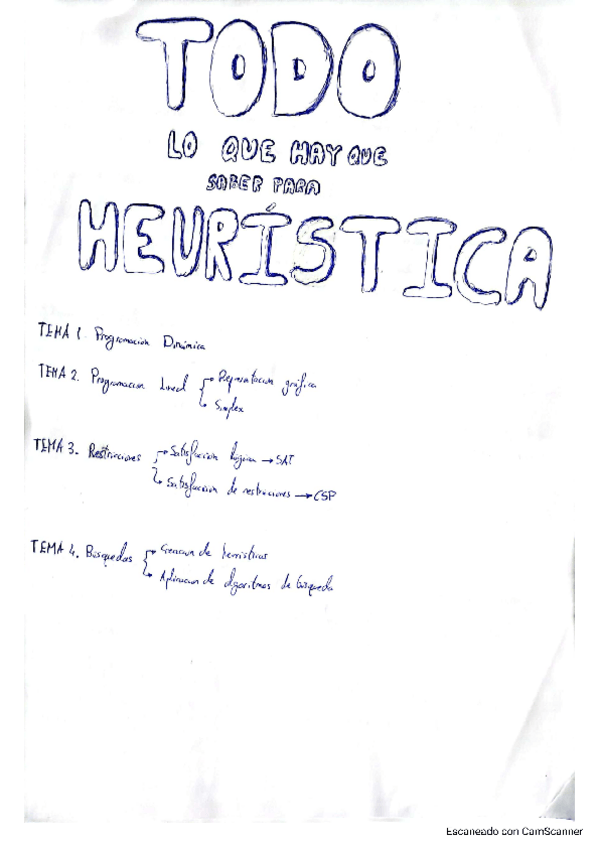 TODO
LO QUE HAY QUE
SABER PARA
HEURÍSTICA
TEMA 1. Programación Dinámica
TEMA 2. Programación Lineal → Representación gráfica
→ Simplex
TEMA 3. Restricciones → Satisfacción lógica → SAT
→ Satisfacción de restricciones → CSP
TEMA 4. Búsquedas → Creación de heurísticas
→ Aplicación de algoritmos de búsqueda
Escaneado con CamScanner